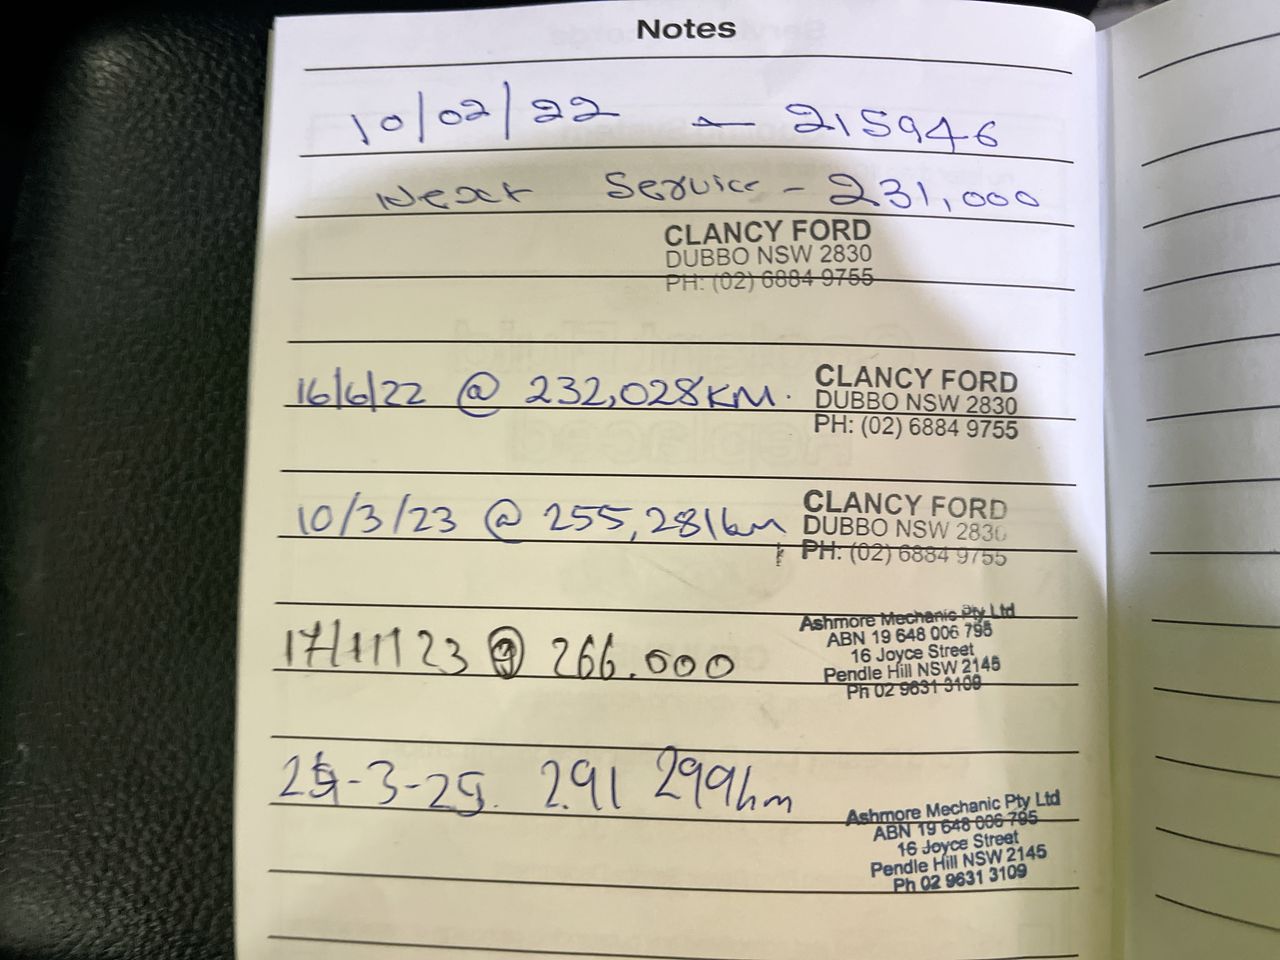 Notes
10/02/22 - 215946
Next Service - 231,000
CLANCY FORD
DUBBO NSW 2830
PH: (02) 6884 9755
16/6/22 @ 232,028KM.
CLANCY FORD
DUBBO NSW 2830
PH: (02) 6884 9755
10/3/23 @ 255,281km
CLANCY FORD
DUBBO NSW 2830
PH: (02) 6884 9755
17/11/23 @ 266.000
Ashmore Mechanic Pty Ltd
ABN 19 648 006 795
16 Joyce Street
Pendle Hill NSW 2145
Ph 02 9631 3109
-3-25. 291 299km
Ashmore Mechanic Pty Ltd
ABN 19 648 006 795
16 Joyce Street
Pendle Hill NSW 2145
Ph 02 9631 3109